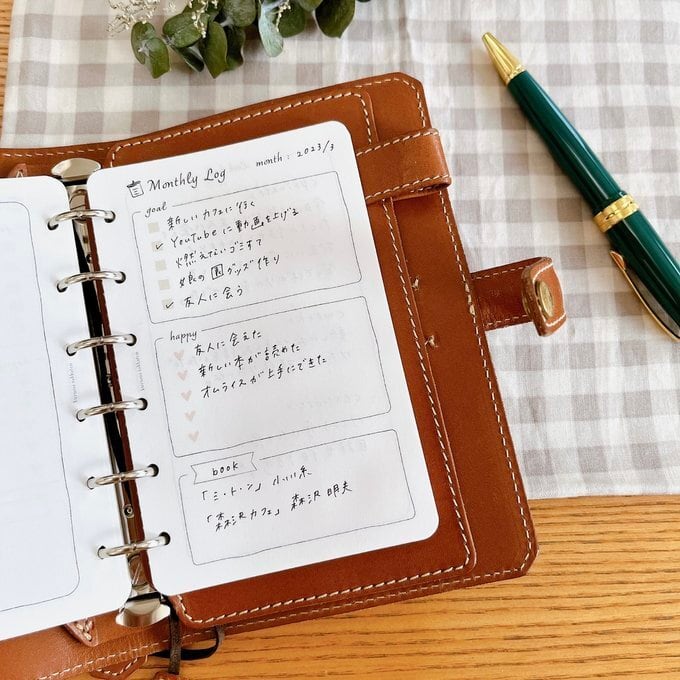 Monthly Log
month : 2023/3
goal
新しいカフェに行く
YouTubeに動画を上げる
燃えないゴミすて
娘の園グッズ作り
友人に会う
happy
友人に会えた
新しい本が読めた
オムライスが上手にできた
book
「ミ・ト・ン」 小川糸
「森沢カフェ」 森沢明夫